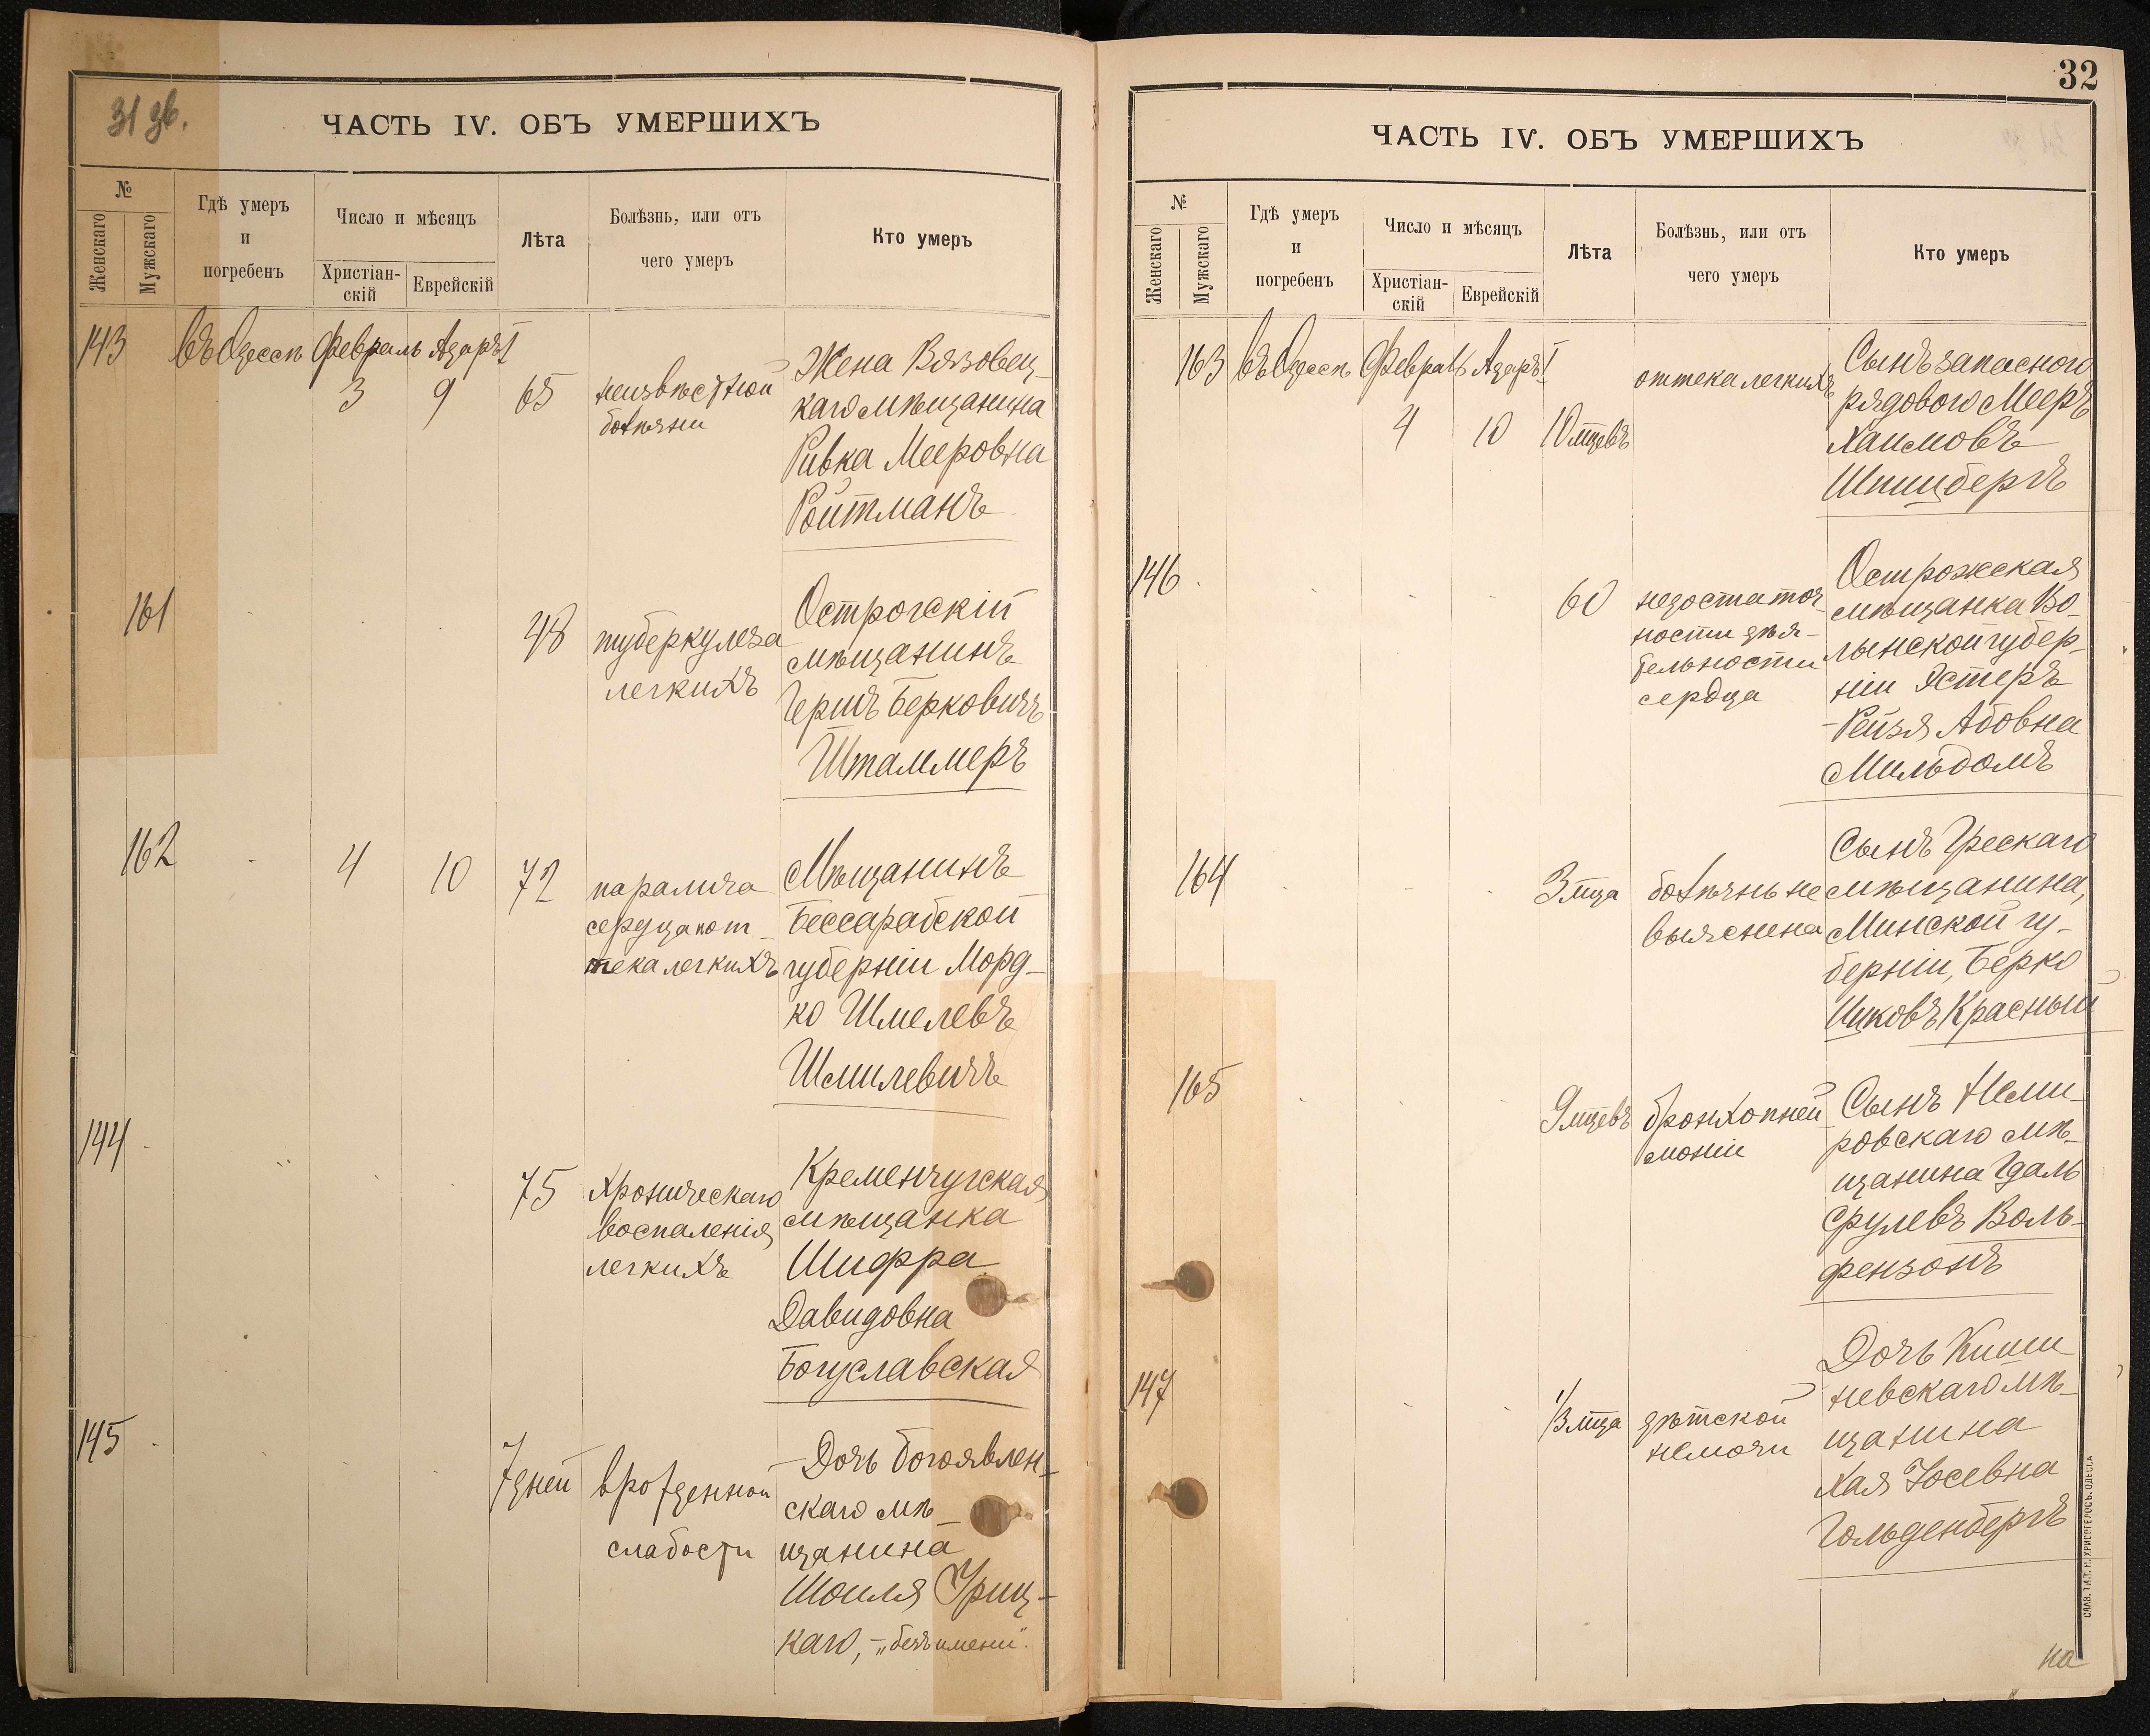 31 зв.
ЧАСТЬ IV. ОБЪ УМЕРШИХЪ
№
Женскаго
Мужскаго
Гдѣ умеръ
и
погребенъ
Число и мѣсяцъ
Христіан-
скій
Еврейскій
Лѣта
Болѣзнь, или отъ
чего умеръ
Кто умеръ
143 въ Одессѣ Февраль Адаръ I
3 9 65
неизвѣстной
болѣзни
Жена Вязовец-
каго мѣщанина
Ривка Мееровна
Ройтманъ
161 48
туберкулеза
легкихъ
Острогскій
мѣщанинъ
Гершъ Берковичъ
Штаммеръ
162 4 10 72
паралича
сердца и от-
тека легкихъ
Мѣщанинъ
Бессарабской
губерніи Морд-
ко Шмелевъ
Шмилевичъ
144 75
хроническаго
воспаленія
легкихъ
Кременчугская
мѣщанка
Шифра
Давидовна
Богуславская
145 7 дней
врожденной
слабости
Дочь Богоявлен-
скаго мѣ-
щанина
Шоиля Уриц-
каго, - „безъ имени".
32
ЧАСТЬ IV. ОБЪ УМЕРШИХЪ
№
Женскаго
Мужскаго
Гдѣ умеръ
и
погребенъ
Число и мѣсяцъ
Христіан-
скій
Еврейскій
Лѣта
Болѣзнь, или отъ
чего умеръ
Кто умеръ
163 въ Одессѣ Февраль Адаръ I
4 10 10 мцевъ
оттека легкихъ
Сынъ запаснаго
рядового Мееръ
Хаимовъ
Шпицбергъ
146 60
недостаточ-
ности дѣя-
тельности
сердца
Острожская
мѣщанка Во-
лынской губер-
ніи Эстеръ
-Рейзя Абовна
Мильдомъ
164 3 мца
болѣзнь не
выяснена
Сынъ Грескаго
мѣщанина,
Минской гу-
берніи, Берко
Ицковъ Красный
165 9 мцевъ
бронхопней-
моніи
Сынъ Неми-
ровскаго мѣ-
щанина Гдаль
Срулевъ Воль-
фензонъ
147 1/3 мца
дѣтской
немочи
Дочь Киши-
невскаго мѣ-
щанина
Хая Іосевна
Гольденбергъ
на